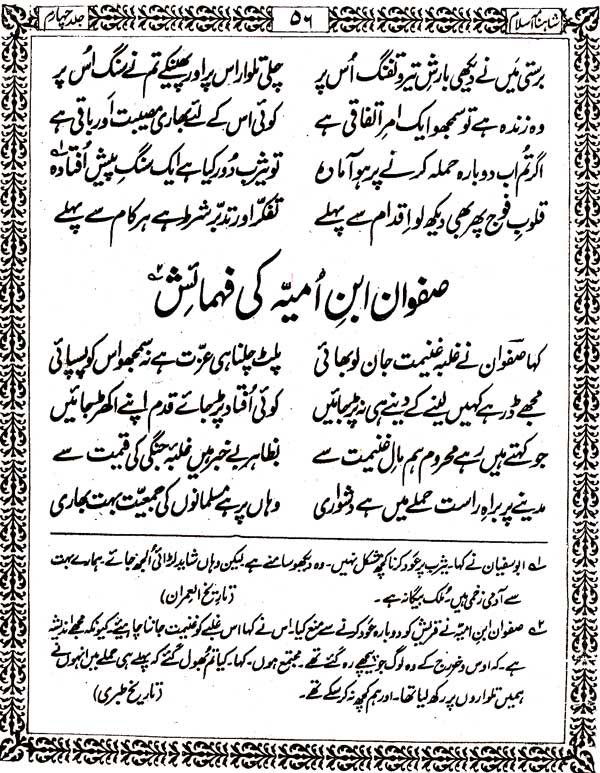 شاہنامۂ اسلام ۵۶ جلد چہارم
برستی میں نے دیکھی بارشِ تیر و تفنگ اُس پر چلی تلوار اس پر اور پھینکے تم نے سنگ اُس پر
وہ زندہ ہے تو سمجھو ایک امرِ اتفاقی ہے کوئی اس کے لئے بھاری مصیبت اور باقی ہے
اگر تم اب دوبارہ حملہ کرنے پر ہو آمادہ تو یثرب دُور کیا ہے ایک سنگِ پیش اُفتادہ ۱
قلوبِ فوج پھر بھی دیکھ لو اقدام سے پہلے تفکر اور تدبر شرط ہے ہر کام سے پہلے
صفوان ابنِ اُمیہ کی فہمائش ۲
کہا صفوان نے غلبہ غنیمت جان لو بھائی پلٹ چلنا ہی عزت ہے نہ سمجھو اس کو پسپائی
مجھے ڈر ہے کہیں لینے کے دینے ہی نہ پڑ جائیں کوئی اُفتاد پڑ جائے قدم اپنے اکھڑ جائیں
جو کہتے ہیں رہے محروم ہم مالِ غنیمت سے بظاہر بے خبر ہیں غلبۂ جنگی کی قیمت سے
مدینے پر براہِ راست حملے میں ہے دشواری وہاں پر ہے مسلمانوں کی جمعیت بہت بھاری
۱ ابوسفیان نے کہا۔ یثرب پر عود کرنا کچھ مشکل نہیں۔ وہ دیکھو سامنے ہے لیکن وہاں شاید لڑائی اُلجھ جائے۔ ہمارے بہت
سے آدمی زخمی ہیں۔ مُلک بیگانہ ہے۔ (تاریخ العمران)
۲ صفوان ابن امیہ نے قریش کو دوبارہ عود کرنے سے منع کیا۔ اس نے کہا اس غلبے کو غنیمت جاننا چاہیئے کیونکہ مجھے اندیشہ
ہے۔ کہ اوس و خزرج کے وہ لوگ جو پیچھے رہ گئے تھے۔ مجتمع ہوں۔ کہا۔ کیا تم بھول گئے کہ پہلے ہی حملے میں انہوں نے
ہمیں تلواروں پر رکھ لیا تھا۔ اور ہم کچھ نہ کر سکے تھے۔ (تاریخ طبری)